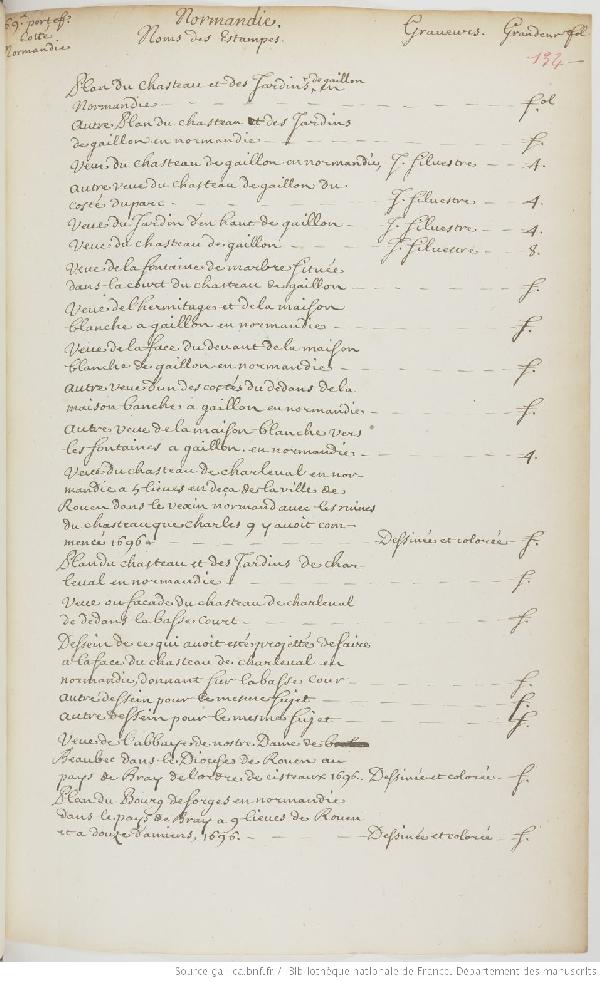 69e. portef.
Cotté
Normandie
Normandie.
Noms des Estampes. Graveurs. Grandeur fol
134
Plan du chasteau et des Jardins, de gaillon en
Normandie fol
autre Plan du chasteau et des Jardins
de gaillon en normandie f.
Veue du chasteau de gaillon en normandie, J. Silvestre 4.
autre veue du chasteau de gaillon du
costé du parc. J. Silvestre 4.
Veue du Jardin d'en haut de gaillon J. Silvestre 4.
Veue du chasteau de gaillon J. Silvestre 8.
Veue de la fontaine de marbre située
dans la court du chasteau de gaillon f.
Veue de l'hermitage et de la maison
blanche a gaillon en normandie f.
Veue de la face du devant de la maison
blanche de gaillon en normandie f.
autre veue d'un des costés du dedans de la
maison banche a gaillon en normandie f.
autre veue de la maison blanche vers
les fontaines a gaillon. en normandie 4.
Veue du chasteau de charleval en nor-
mandie a 5 lieues en deça de la ville de
Rouen dans le vexin normand avec les ruines
du chasteau que charles 9 y avoit com-
mencé 1696 Dessinée et coloriée f.
Plan du chasteau et des Jardins de char-
leval en normandie f.
Veue ou facade du chasteau de charleval
de dedans la basse court f.
Dessein de ce qui avoit esté projetté de faire
a la face du chasteau de charleval en
normandie, donnant sur la basse cour f.
autre dessein pour le mesme sujet f.
autre dessein pour le mesme sujet f.
Veue de l'abbaye de nostre Dame de
Beaubec dans le Diocese de Rouen au
pays de Bray de l'ordre de cisteaux 1696. Dessinée et coloriée f.
Plan du Bourg de forges en normandie
dans le pays de Bray a 9 lieues de Rouen
et a douze d'amiens, 1696. Dessinée et coloriée f.
Source gallica.bnf.fr / Bibliothèque nationale de France. Département des manuscrits.